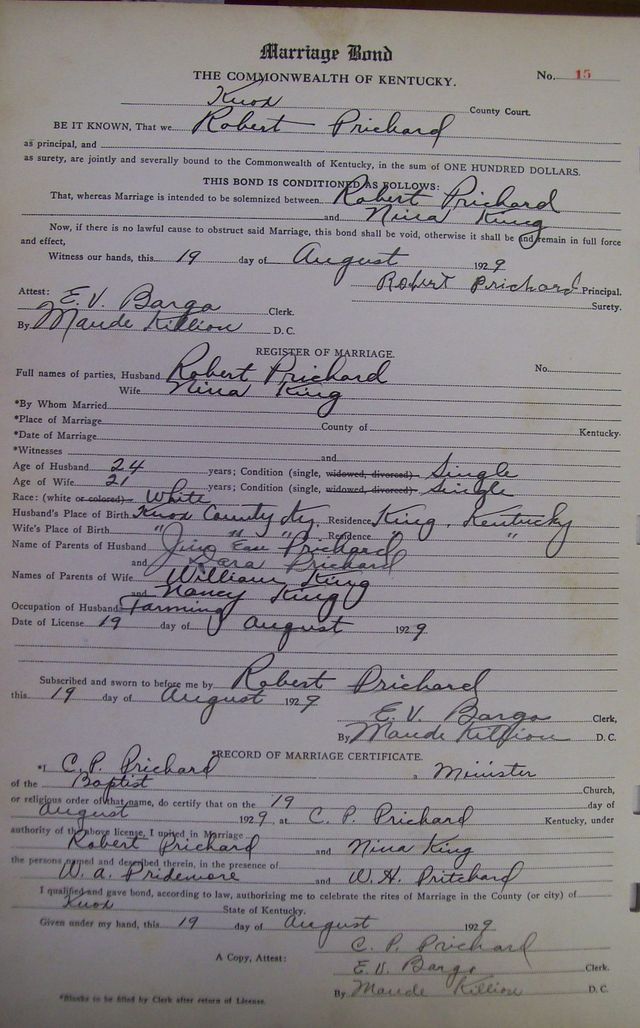 Marriage Bond
THE COMMONWEALTH OF KENTUCKY. No. 15
Knox County Court.
BE IT KNOWN, That we Robert Prichard
as principal, and
as surety, are jointly and severally bound to the Commonwealth of Kentucky, in the sum of ONE HUNDRED DOLLARS.
THIS BOND IS CONDITIONED AS FOLLOWS:
That, whereas Marriage is intended to be solemnized between Robert Prichard
and Nina King
Now, if there is no lawful cause to obstruct said Marriage, this bond shall be void, otherwise it shall be and remain in full force
and effect,
Witness our hands, this 19 day of August 1929
Robert Prichard Principal.
Surety.
Attest: E. V. Bargo Clerk.
By Maude Killion D. C.
REGISTER OF MARRIAGE.
Full names of parties, Husband Robert Prichard No.
Wife Nina King
*By Whom Married
*Place of Marriage County of Kentucky.
*Date of Marriage
*Witnesses and
Age of Husband 24 years; Condition (single, widowed, divorced) Single
Age of Wife 21 years; Condition (single, widowed, divorced) Single
Race: (white or colored) White
Husband's Place of Birth Knox County Ky, Residence King, Kentucky
Wife's Place of Birth " " " Residence "
Name of Parents of Husband Jim Prichard
and Prichard
Names of Parents of Wife William King
and Nancy King
Occupation of Husband Farming
Date of License 19 day of August 1929
Subscribed and sworn to before me by Robert Prichard
this 19 day of August 1929
E. V. Bargo Clerk,
By Maude Killion D. C.
*RECORD OF MARRIAGE CERTIFICATE.
*I C. P. Prichard, Minister
of the Baptist Church,
or religious order of that name, do certify that on the 19 day of
August 1929, at C. P. Prichard Kentucky, under
authority of the above license, I united in Marriage
Robert Prichard and Nina King
the persons named and described therein, in the presence of
W. A. Pridemore and W. H. Pritchard
I qualified and gave bond, according to law, authorizing me to celebrate the rites of Marriage in the County (or city) of
Knox State of Kentucky.
Given under my hand, this 19 day of August 1929
C. P. Prichard
A Copy, Attest: E. V. Bargo Clerk.
By Maude Killion D. C.
*Blanks to be filled by Clerk after return of License.